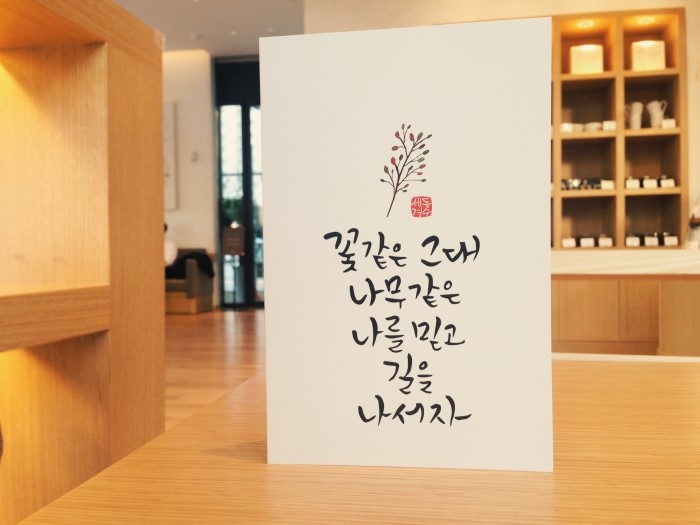 꽃같은 그대
나무같은
나를 믿고
길을
나서자